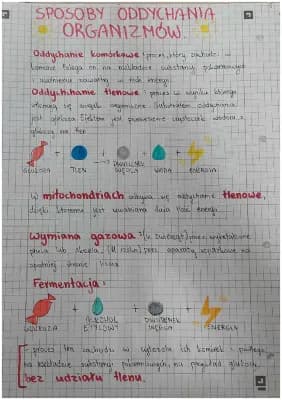 SPOSOBY ODDYCHANIA
ORGANIZMÓW.
Oddychanie komórkowe: proces, który zachodzi w
komórce. Polega on na rozkładzie substancji pokarmowych
i uwolnieniu zawartej w nich energii.
Oddychanie tlenowe: proces w wyniku którego
utleniają się związki organiczne. Substratem oddychania
jest glukoza. Efektem jest przeniesienie cząsteczek wodoru z
glukozy na tlen.
+ → + +
GLUKOZA TLEN DWUTLENEK WĘGLA WODA ENERGIA
W mitochondriach odbywa się oddychanie tlenowe,
dzięki któremu jest uwalniana duża ilość energii.
Wymiana gazowa: (u zwierząt) przez wyspecjalizowane
płuca lub skrzela, (u roślin) przez aparaty szparkowe na
spodniej stronie liścia.
Fermentacja:
+ + +
GLUKOZA ALKOHOL ETYLOWY DWUTLENEK WĘGLA ENERGIA
- proces ten zachodzi w komórek i polega
na rozkładzie substancji pokarmowych, na przykład glukozy,
bez udziału tlenu.